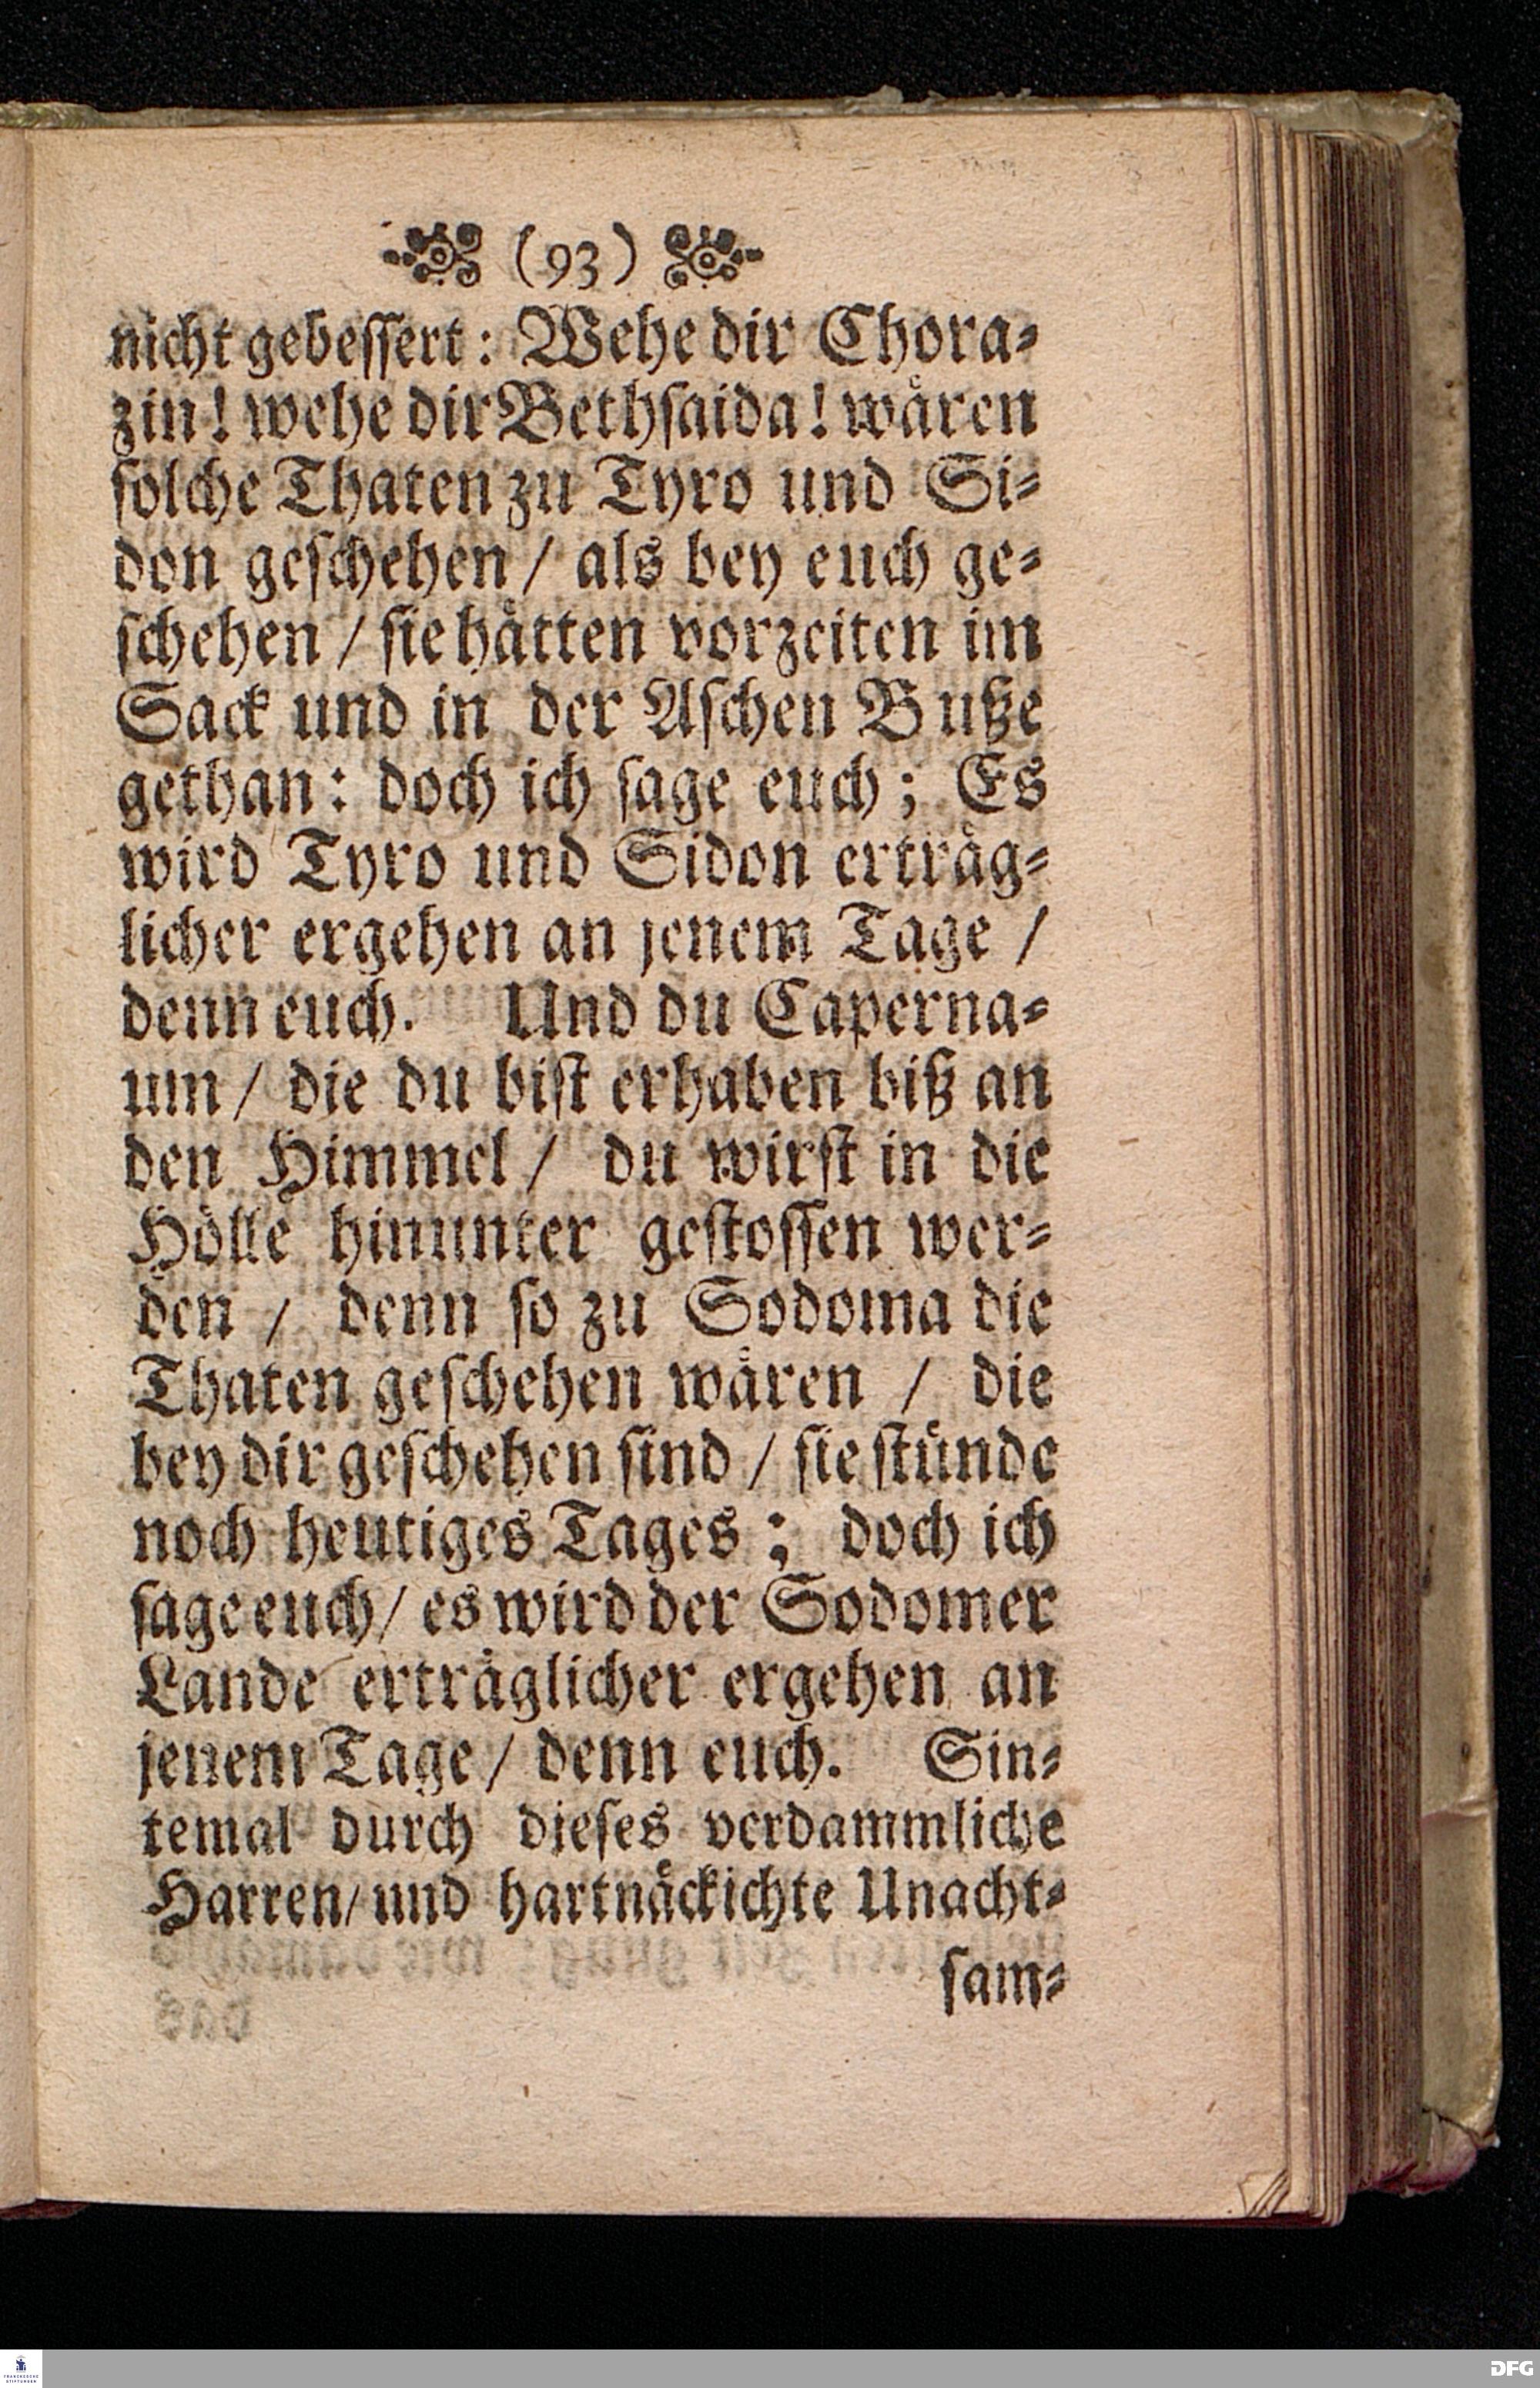 (93)
nicht gebessert: Wehe dir Chora⸗
zin! wehe dir Bethsaida! wären
solche Thaten zu Tyro und Si⸗
don geschehen / als bey euch ge⸗
schehen / sie hätten vorzeiten im
Sack und in der Aschen Buße
gethan: doch ich sage euch; Es
wird Tyro und Sidon erträg⸗
licher ergehen an jenem Tage /
denn euch. Und du Caperna⸗
um / die du bist erhaben biß an
den Himmel / du wirst in die
Hölle hinunter gestossen wer⸗
den / denn so zu Sodoma die
Thaten geschehen wären / die
bey dir geschehen sind / sie stünde
noch heutiges Tages; doch ich
sage euch / es wird der Sodomer
Lande erträglicher ergehen an
jenem Tage / denn euch. Sin⸗
temal durch dieses verdammliche
Harren / und hartnäckichte Unacht⸗
sam⸗
FRANCKESCHE
STIFTUNGEN
DFG